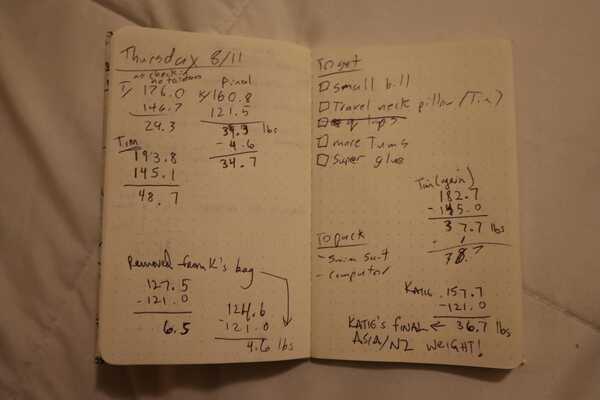 Thursday 8/11
no check in
no tandem
T/ 176.0
146.7
29.3
Final
K/160.8
121.5
39.3 lbs
- 4.6
34.7
Tim
193.8
145.1
48.7
Removed from K's bag
127.5
-121.0
6.5
124.6
-121.0
4.6 lbs
To get
small bill
Travel neck pillow (Tim)
more Tums
Super glue
Tim (again)
182.7
-145.0
37.7 lbs
To pack
- Swim suit
- computer
KATIE 157.7
-121.0
36.7 lbs
KATIE'S FINAL ←
ASIA/NZ WEIGHT!